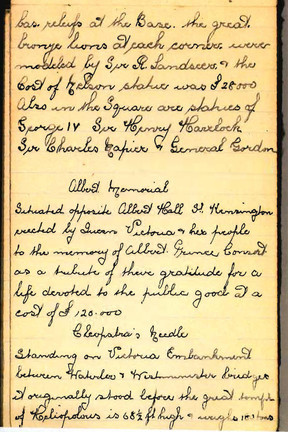 bas reliefs at the Base. the great
bronze lions at each corner were
modeled by Sir R. Landseer. & the
Cost of Nelson statue was £28000
Also in the Square are statues of
George IV Sir Henry Havelock
Sir Charles Napier & General Gordon
Albert Memorial
Situated opposite Albert Hall St. Kensington
erected by Queen Victoria & her people
to the memory of Albert. Prince Consort
as a tribute of their gratitude for a
life devoted to the public good at a
cost of £120.000
Cleopatra's Needle
Standing on Victoria Embankment
between Waterloo & Westminster bridges
it originally stood before the great temple
of Heliopolis is 68½ ft high & weighs tons